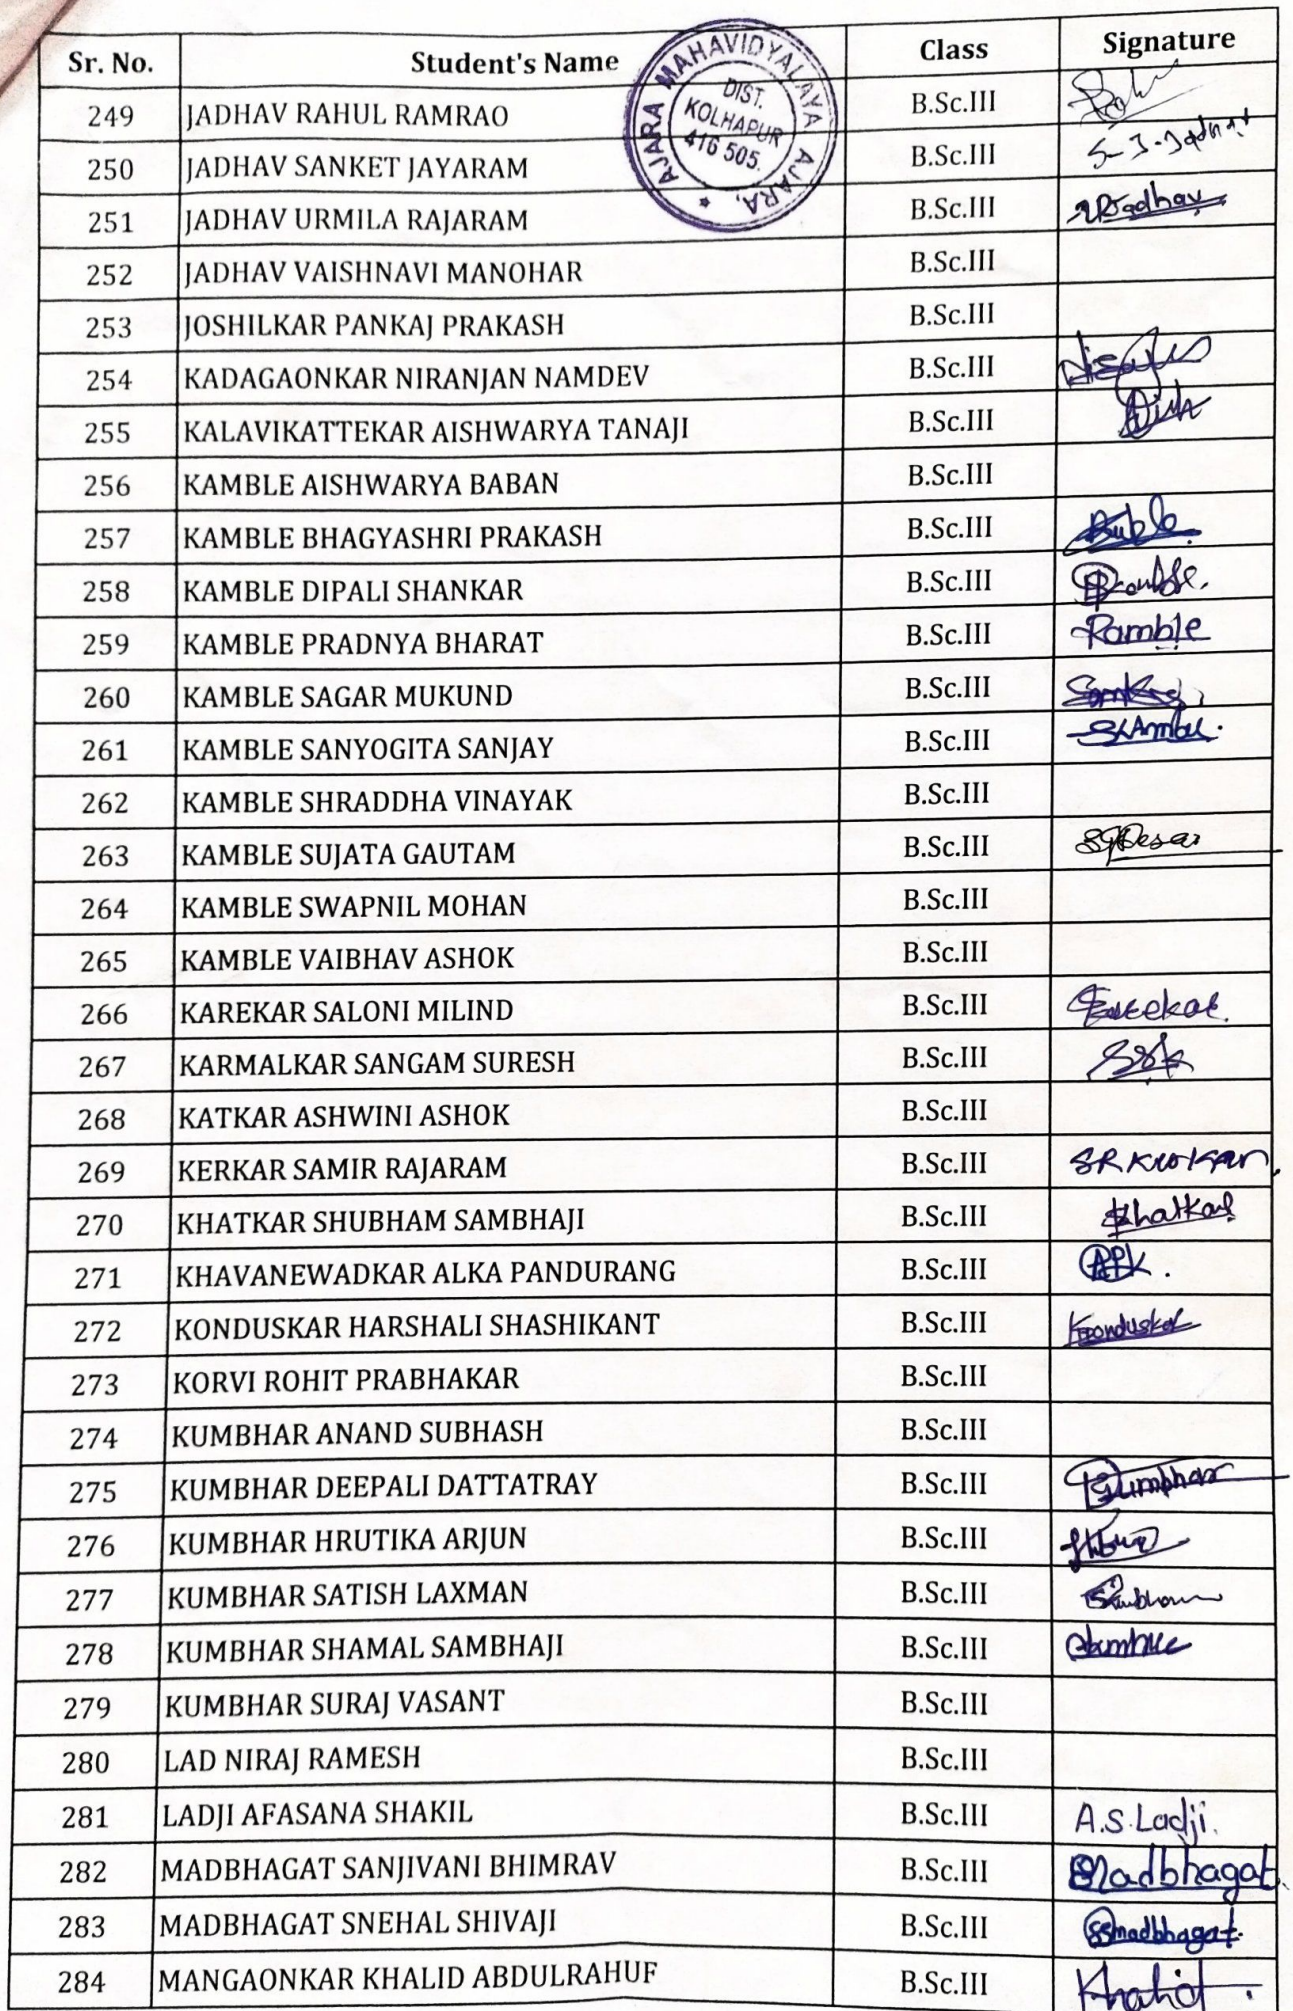 Sr. No. Student's Name Class Signature
AJARA MAHAVIDYALAYA AJARA,
DIST.
KOLHAPUR
416 505.
249 JADHAV RAHUL RAMRAO B.Sc.III
250 JADHAV SANKET JAYARAM B.Sc.III S-J-Jadhav
251 JADHAV URMILA RAJARAM B.Sc.III URJadhav
252 JADHAV VAISHNAVI MANOHAR B.Sc.III
253 JOSHILKAR PANKAJ PRAKASH B.Sc.III
254 KADAGAONKAR NIRANJAN NAMDEV B.Sc.III
255 KALAVIKATTEKAR AISHWARYA TANAJI B.Sc.III
256 KAMBLE AISHWARYA BABAN B.Sc.III
257 KAMBLE BHAGYASHRI PRAKASH B.Sc.III
258 KAMBLE DIPALI SHANKAR B.Sc.III
259 KAMBLE PRADNYA BHARAT B.Sc.III Pamble
260 KAMBLE SAGAR MUKUND B.Sc.III
261 KAMBLE SANYOGITA SANJAY B.Sc.III
262 KAMBLE SHRADDHA VINAYAK B.Sc.III
263 KAMBLE SUJATA GAUTAM B.Sc.III SGDesai
264 KAMBLE SWAPNIL MOHAN B.Sc.III
265 KAMBLE VAIBHAV ASHOK B.Sc.III
266 KAREKAR SALONI MILIND B.Sc.III
267 KARMALKAR SANGAM SURESH B.Sc.III SSK
268 KATKAR ASHWINI ASHOK B.Sc.III
269 KERKAR SAMIR RAJARAM B.Sc.III
270 KHATKAR SHUBHAM SAMBHAJI B.Sc.III Khatkar
271 KHAVANEWADKAR ALKA PANDURANG B.Sc.III APK.
272 KONDUSKAR HARSHALI SHASHIKANT B.Sc.III
273 KORVI ROHIT PRABHAKAR B.Sc.III
274 KUMBHAR ANAND SUBHASH B.Sc.III
275 KUMBHAR DEEPALI DATTATRAY B.Sc.III
276 KUMBHAR HRUTIKA ARJUN B.Sc.III
277 KUMBHAR SATISH LAXMAN B.Sc.III
278 KUMBHAR SHAMAL SAMBHAJI B.Sc.III
279 KUMBHAR SURAJ VASANT B.Sc.III
280 LAD NIRAJ RAMESH B.Sc.III
281 LADJI AFASANA SHAKIL B.Sc.III A.S.Ladji.
282 MADBHAGAT SANJIVANI BHIMRAV B.Sc.III SMadbhagat
283 MADBHAGAT SNEHAL SHIVAJI B.Sc.III SSmadbhagat.
284 MANGAONKAR KHALID ABDULRAHUF B.Sc.III Khalid